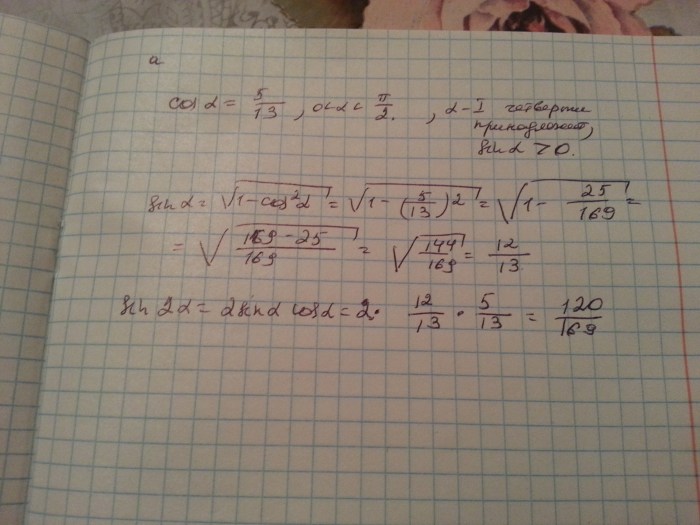 а
cos α = 5/13, 0<α<π/2, α - I четверти
принадлежит,
sin α > 0.
sin α = √(1-cos²α) = √(1-(5/13)²) = √(1 - 25/169) =
= √((169-25)/169) = √(144/169) = 12/13
sin 2α = 2 sin α cos α = 2 · 12/13 · 5/13 = 120/169